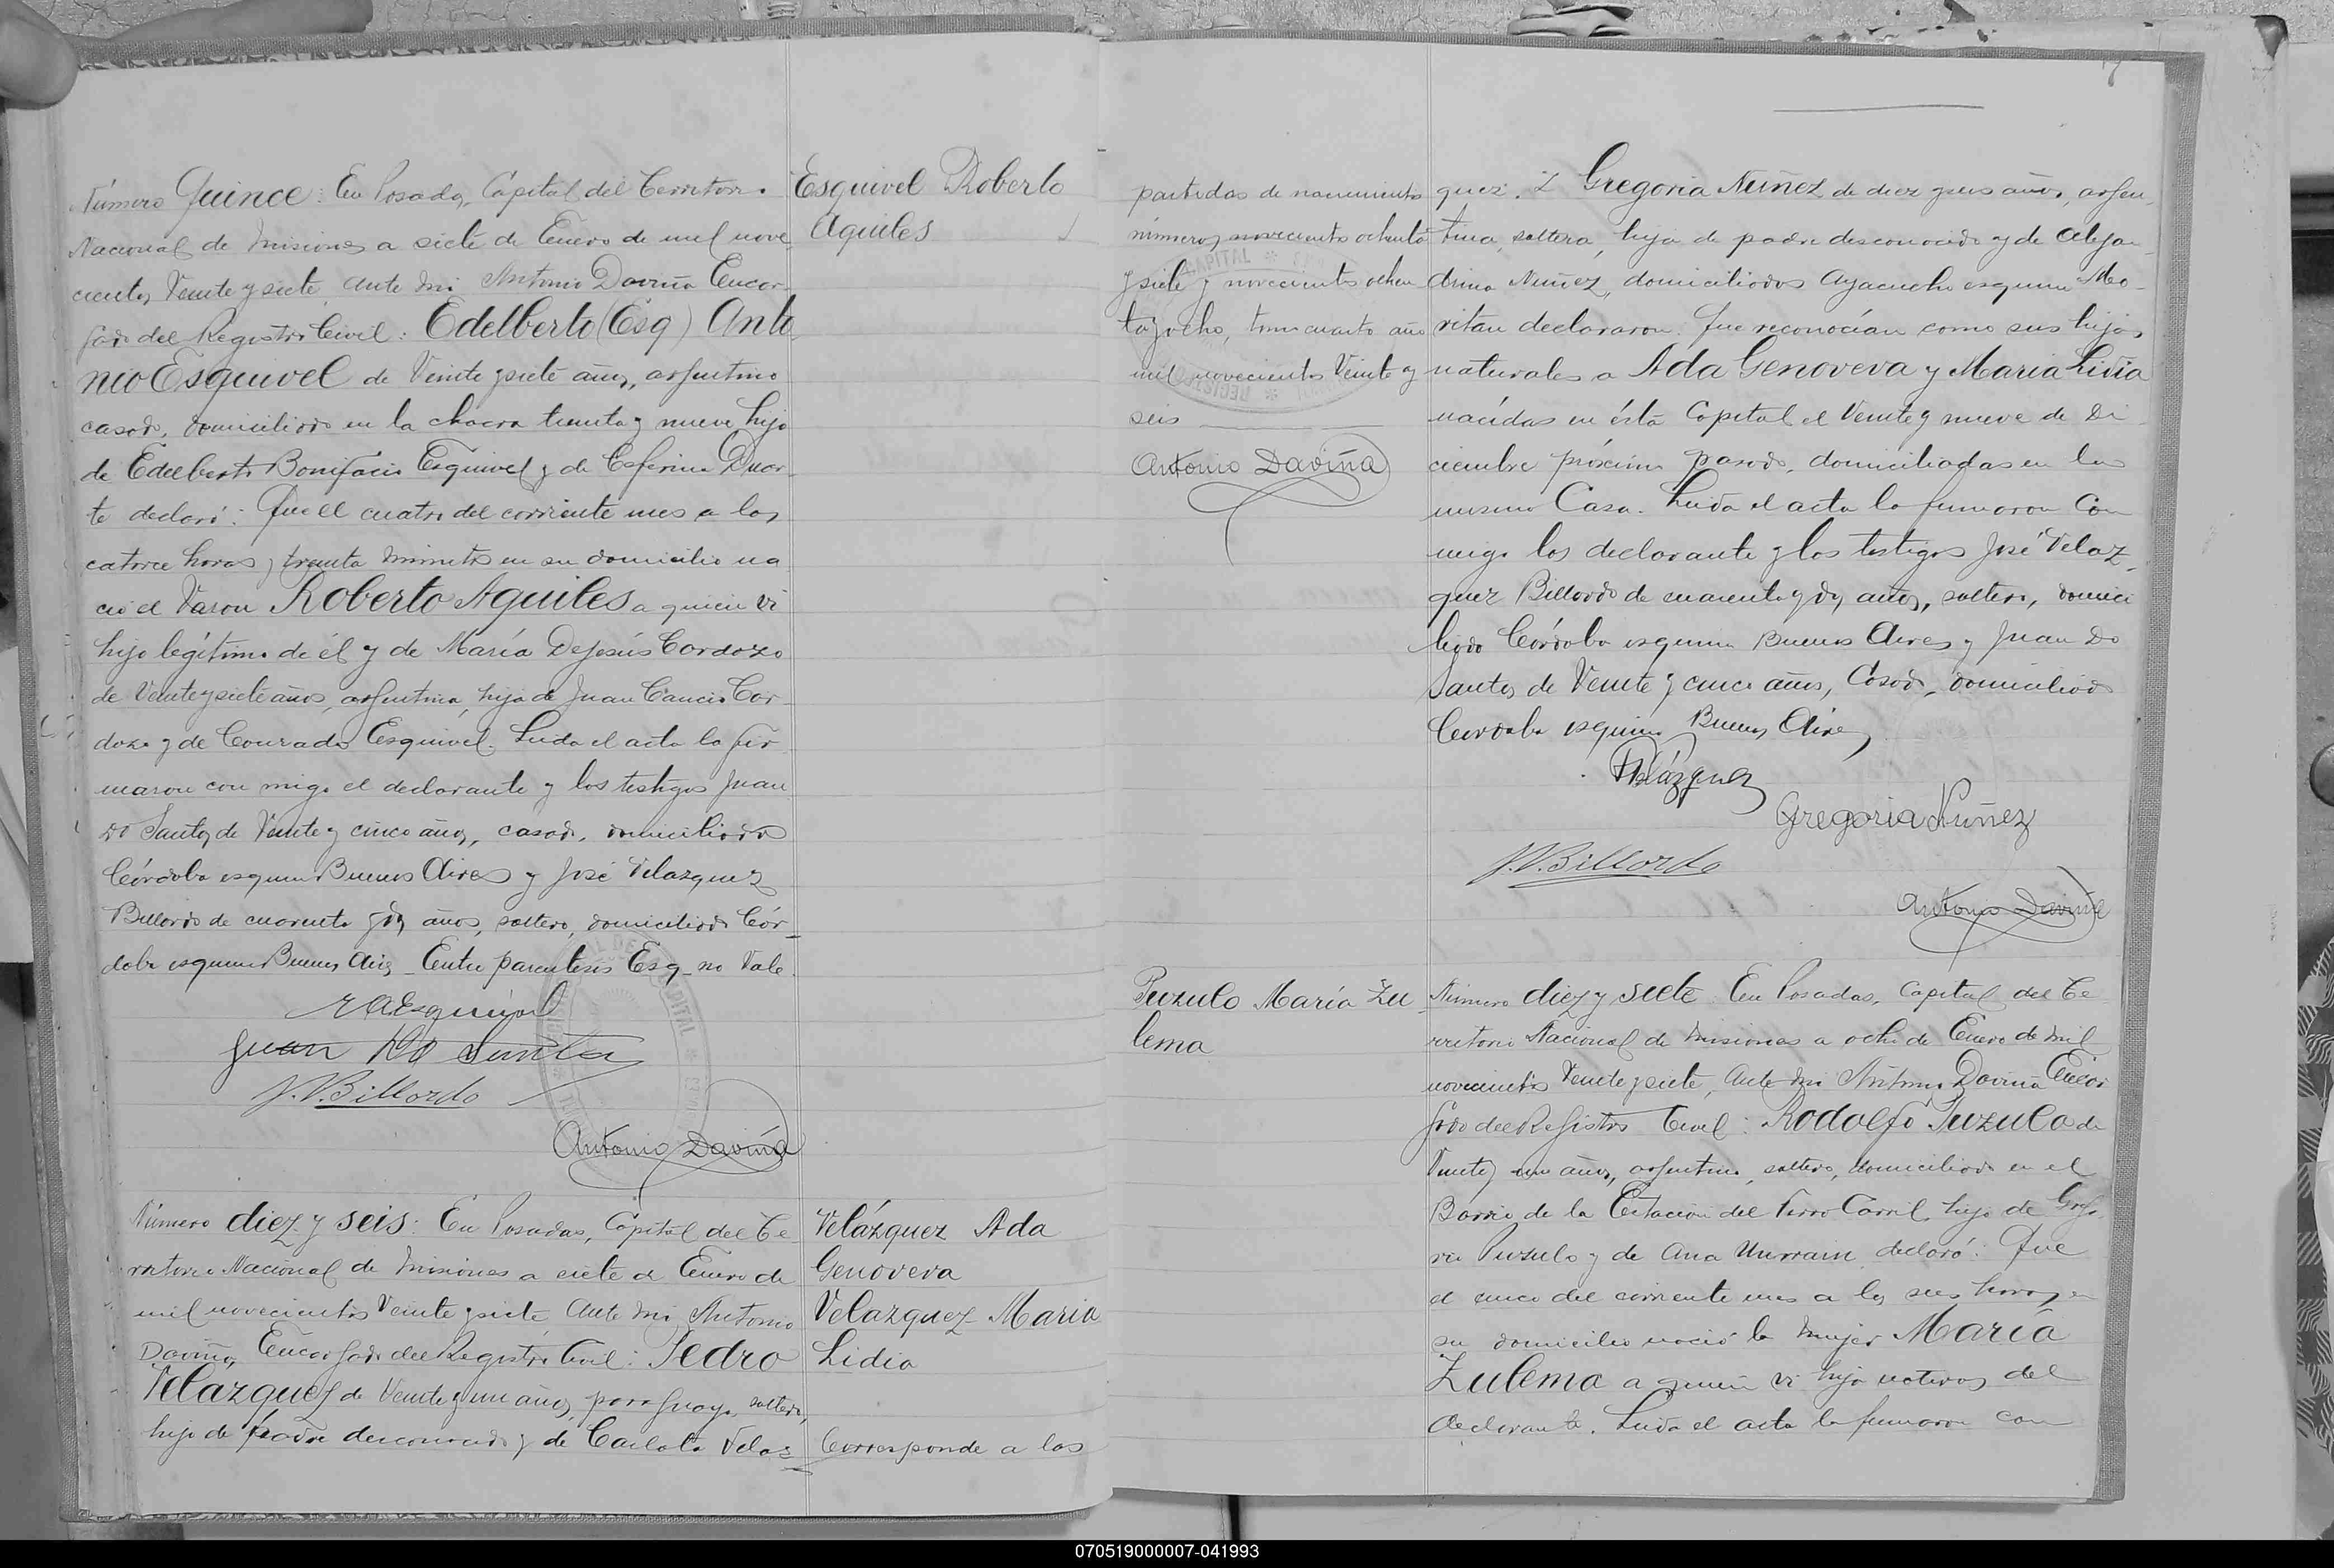 Número Quince: En Posadas, Capital del Territorio
Nacional de Misiones a siete de Enero de mil nove
cientos Veinte y siete, ante mi Antonio Daviña Encar-
gado del Registro Civil: Edelberto (Esq) Anto
nio Esquivel de Veinte y siete años, argentino
casado, domiciliado en la chacra treinta y nueve, hijo
de Edelberto Bonifacio Esquivel y de Ceferina Duar-
te declaró: Que el cuatro del corriente mes a las
catorce horas y treinta minutos en su domicilio na
ció el Varon Roberto Aquiles a quien vi
hijo legítimo de él y de María De Jesús Cardozo
de Veinte y siete años, argentina, hija de Juan Cancio Car-
dozo y de Conrada Esquivel. Leida el acta la fir
maron con migo el declarante y los testigos Juan
Do Santos de Veinte y cinco años, casado, domiciliado
Córdoba esquina Buenos Aires y José Velazquez
Billordo de cuarenta y dos años, soltero, domiciliado Cór-
doba esquina Buenos Aires - Entre parentesis Esq - no Vale.
E A Esquivel
Juan Do Santos
J. V. Billordo
Antonio Daviña
Esquivel Roberto
Aquiles
Número diez y seis: En Posadas, Capital del Te-
rritorio Nacional de Misiones a siete de Enero de
mil novecientos Veinte y siete Ante mi, Antonio
Daviña, Encargado del Registro Civil: Pedro
Velazquez de Veinte y un años, paraguayo, soltero,
hijo de padre desconocido y de Carlota Velaz
Velázquez Ada
Genoveva
Velazquez Maria
Lidia
Corresponde a las
partidas de nacimiento
números novecientos ochenta
y siete y novecientos ochen
ta y ocho, tomo cuarto año
mil novecientos Veinte y
seis
Antonio Daviña
quez. Y Gregoria Nuñez de diez y seis años, argen
tina, soltera, hija de padre desconocido y de Aleja-
drina Nuñez, domiciliados Ayacucho esquina
declararon: Que reconocían como sus hijas
naturales a Ada Genoveva y Maria Lidia
nacidas en ésta Capital el Veinte y nueve de Di
ciembre próximo pasado, domiciliadas en la
misma Casa. Leida el acta la firmaron con
migo los declarante y los testigos José Velaz-
quez Billordo de cuarenta y dos años, soltero, domici
liado Córdoba esquina Buenos Aires y Juan Do
Santos de Veinte y cinco años, Casado, domiciliado
Cordoba esquina Buenos Aires
PVelázquez
Gregoria Nuñez
J. V. Billordo
Antonio Daviña
Puzulo María Zu
lema
Número diez y siete: En Posadas, Capital del Te
rritorio Nacional de Misiones a ocho de Enero de mil
novecientos Veinte y siete, Ante mi Antonio Daviña Encar
gado del Registro Civil: Rodolfo Puzulo de
Veinte y un años, argentino, soltero, domiciliado en el
Barrio de la Estación del Ferro Carril, hijo de Grego
rio Puzulo y de Ana declaró: Que
el cinco del corriente mes a las seis horas, en
su domicilio nació la mujer María
Zulema a quien vi hija natural del
declarante. Leida el acta la firmaron con
070519000007-041993